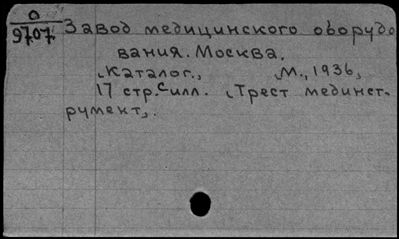 О
9707
Завод медицинского оборудо
вания. Москва.
Каталог., М., 1936,
17 стр. с илл. (Трест мединст-
румент).